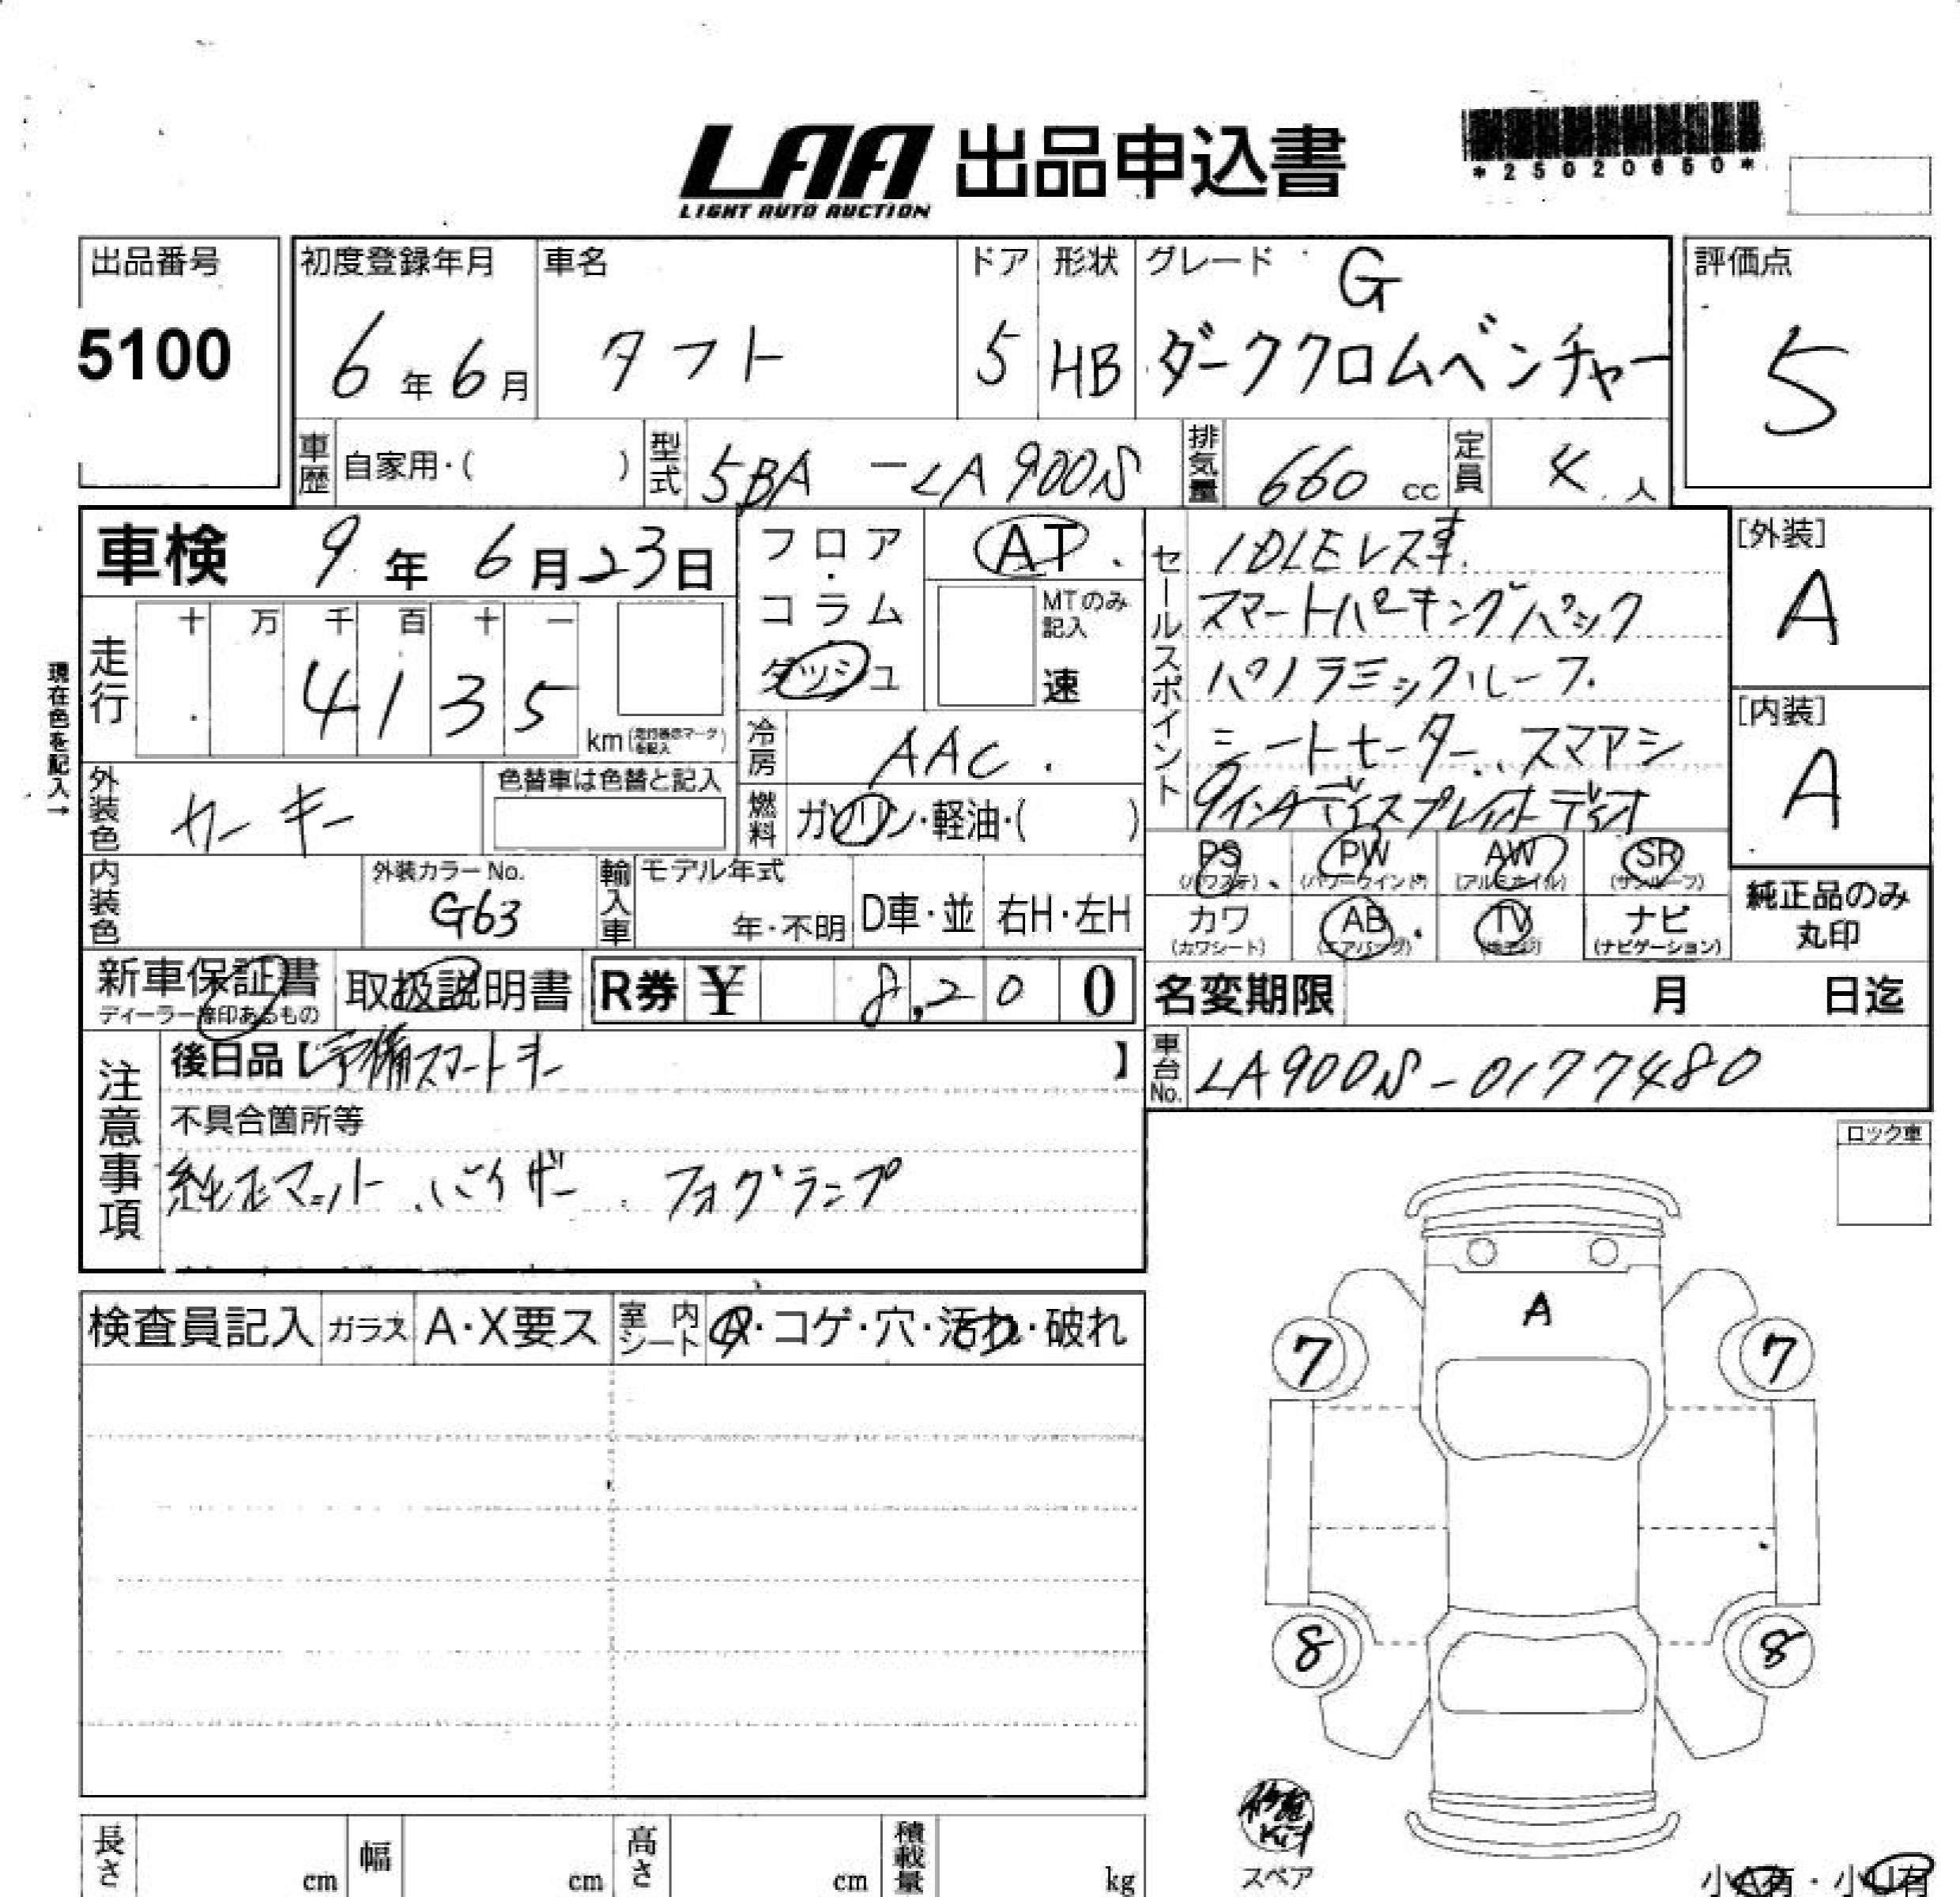 LAA 出品申込書
LIGHT AUTO AUCTION
*25020650*
出品番号
5100
初度登録年月
6年6月
車名
タフト
ドア
5
形状
HB
グレード
G
ダーククロムベンチャー
評価点
5
車歴
自家用・( )
型式
5BA-LA900S
排気量
660 cc
定員
4人
車検 9年6月23日
フロア・コラム
ダッシュ
AT
MTのみ記入
速
走行
十 万 千 百 十 一
4 1 3 5
km
現在色を記入→
冷房
AAC
外装色
カーキー
色替車は色替と記入
燃料
ガソリン・軽油・( )
内装色
外装カラーNo.
G63
輸入車
モデル年式
年・不明
D車・並
右H・左H
セールスポイント
IDLEレス車
スマートパーキングパック
パノラミックルーフ
シートヒーター、スマアシ
9インチディスプレイオーディオ
[外装]
A
[内装]
A
PS (パワステ)
PW (パワーウインド)
AW (アルミホイル)
SR (サンルーフ)
カワ (カワシート)
AB (エアバッグ)
TV
ナビ (ナビゲーション)
純正品のみ
丸印
新車保証書
ディーラー捺印あるもの
取扱説明書
R券 ¥ 8,200
名変期限 月 日迄
注意事項
後日品【予備スマートキー】
不具合箇所等
純正マット バイザー フォグランプ
車台No.
LA900S-0177480
ロック車
検査員記入
ガラス
A・X要ス
室内シート
・コゲ・穴・汚れ・破れ
A
7 7
8 8
修理Kit
スペア
小A有・小U有
長さ cm
幅 cm
高さ cm
積載量 kg